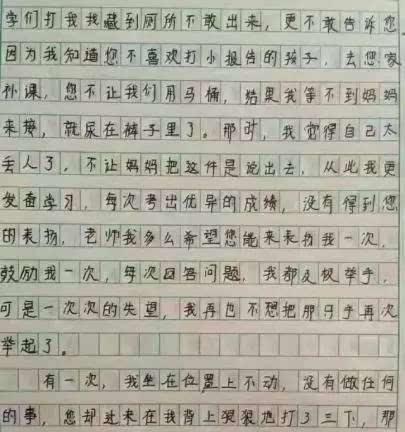 学们打我我藏到厕所不敢出来，更不敢告诉您。
因为我知道您不喜欢打小报告的孩子，去您家
补课，您不让我们用马桶，结果我等不到妈妈
来接，就尿在裤子里了。那时，我觉得自己太
丢人了，不让妈妈把这件是说出去，从此我更
发奋学习，每次考出优异的成绩，没有得到您
的表扬，老师我多么希望您能来表扬我一次，
鼓励我一次，每次回答问题，我都友极举手，
可是一次次的失望，我再也不想把那只手再次
举起了。
有一次，我坐在位置上不动，没有做任何
的事，您却进来在我背上狠狠地打了三下，那